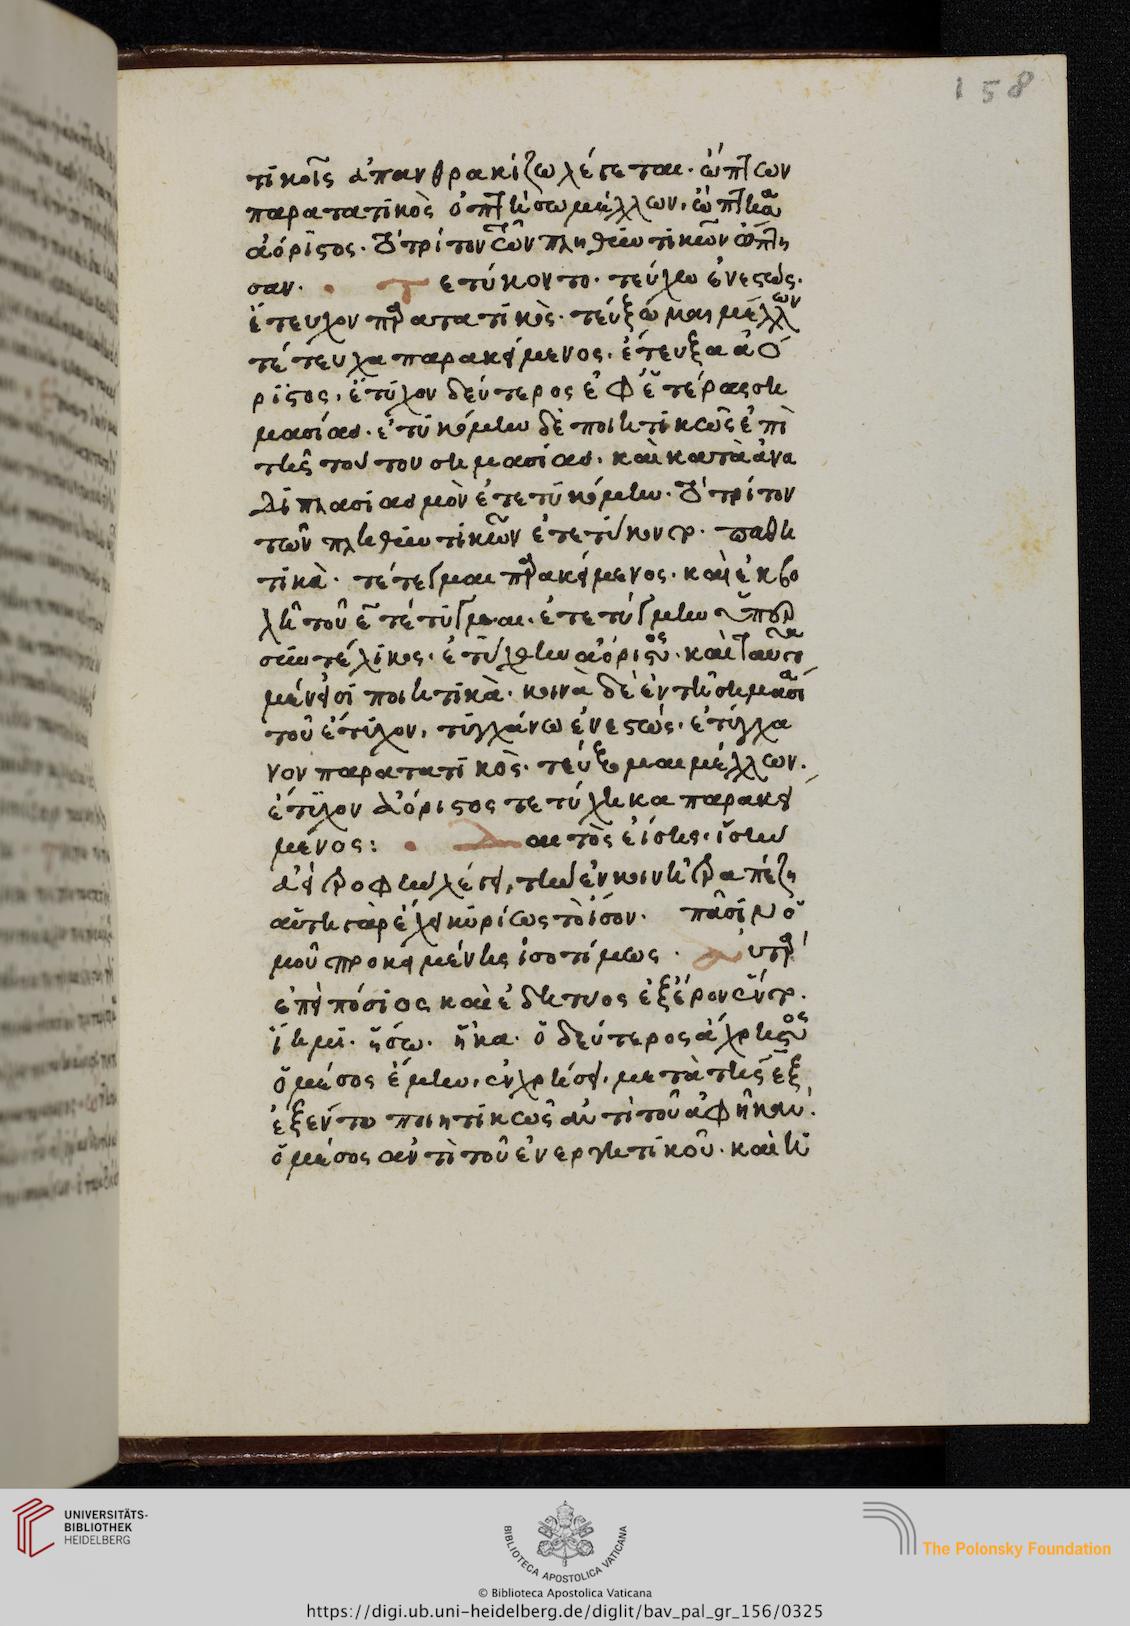 158
τικοῖς ἀπανθρακίζω λέγεται. ὤπτων
παρατατικὸς ὀπτήσω μέλλων, ὤπτησα
ἀόριστος. τὸ τρίτον τῶν πληθυντικῶν ὤπτη
σαν. Τετύκοντο. τεύχω ἐνεστώς.
ἔτευχον παρατατικὸς. τεύξομαι μέλλων
τέτευχα παρακείμενος. ἔτευξα ἀό
ριστος. ἔτυχον δεύτερος ἐφ' ἑτέρας ση
μασίας. ἐτυκόμην δὲ ποιητικῶς ἐπὶ
τῆς τούτου σημασίας. καὶ κατὰ ἀνα
διπλασιασμὸν ἐτετυκόμην. τὸ τρίτον
τῶν πληθυντικῶν ἐτετύκοντο. παθη
τικὰ. τέτευγμαι παρακείμενος. καὶ ἐκβο
λῆ τοῦ ε τέτυγμαι. ἐτετύγμην ὑπερ
συντέλικος. ἐτύχθην ἀόριστος. καὶ ταῦτα
μέν εἰσι ποιητικὰ. κοινὰ δὲ ἐν τῆ σημασί
τοῦ ἔτυχον, τυγχάνω ἐνεστώς. ἐτύγχα
νον παρατατικὸς. τεύξομαι μέλλων.
ἔτυχον ἀόριστος τετύχηκα παρακεί
μένος: Δαιτὸς ἐίσης. ἴσην
τροφὴν λέγει, τὴν ἐν κοινῆ τραπέζη
αὕτη γὰρ ἔχει κυρίως τὸ ἴσον. πᾶσιν ὁ
μοῦ προκειμένης ἰσοτίμως.
ἐπεὶ πόσιος καὶ ἐδητυος ἐξ ἔρον ἕντο.
ἵημι. ἥσω. ἧκα. ὁ δεύτερος ἄχρηστος
ὁ μέσος ἕμην, ἐν χρήσει, μετὰ τῆς ἐξ
ἐξέντο ποιητικῶς ἀντὶ τοῦ ἀφῆκαν.
ὁ μέσος ἀντὶ τοῦ ἐνεργητικοῦ. καὶ ἡ
UNIVERSITÄTS-
BIBLIOTHEK
HEIDELBERG
BIBLIOTECA APOSTOLICA VATICANA
The Polonsky Foundation
© Biblioteca Apostolica Vaticana
https://digi.ub.uni-heidelberg.de/diglit/bav_pal_gr_156/0325